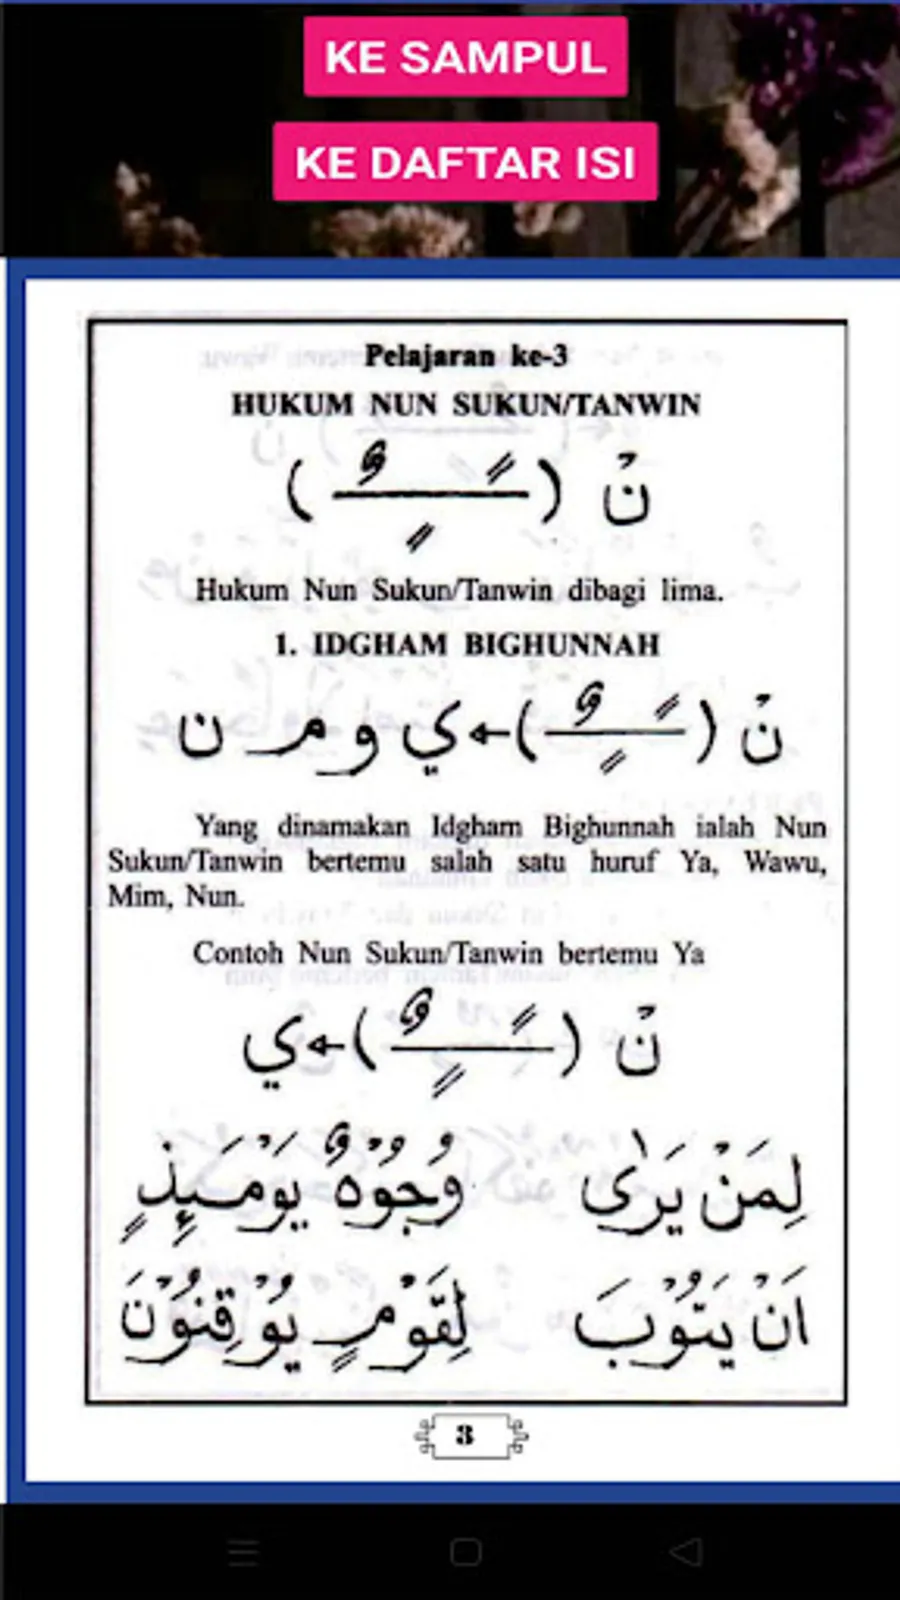 KE SAMPUL
KE DAFTAR ISI
Pelajaran ke-3
HUKUM NUN SUKUN/TANWIN
نْ ( ـًـٍـٌ )
Hukum Nun Sukun/Tanwin dibagi lima.
1. IDGHAM BIGHUNNAH
نْ ( ـًـٍـٌ ) ← ي و م ن
Yang dinamakan Idgham Bighunnah ialah Nun
Sukun/Tanwin bertemu salah satu huruf Ya, Wawu,
Mim, Nun.
Contoh Nun Sukun/Tanwin bertemu Ya
نْ ( ـًـٍـٌ ) ← ي
لِمَنْ يَرٰى وُجُوْهٌ يَوْمَئِذٍ
اَنْ يَتُوْبَ لِقَوْمٍ يُوْقِنُوْنَ
3